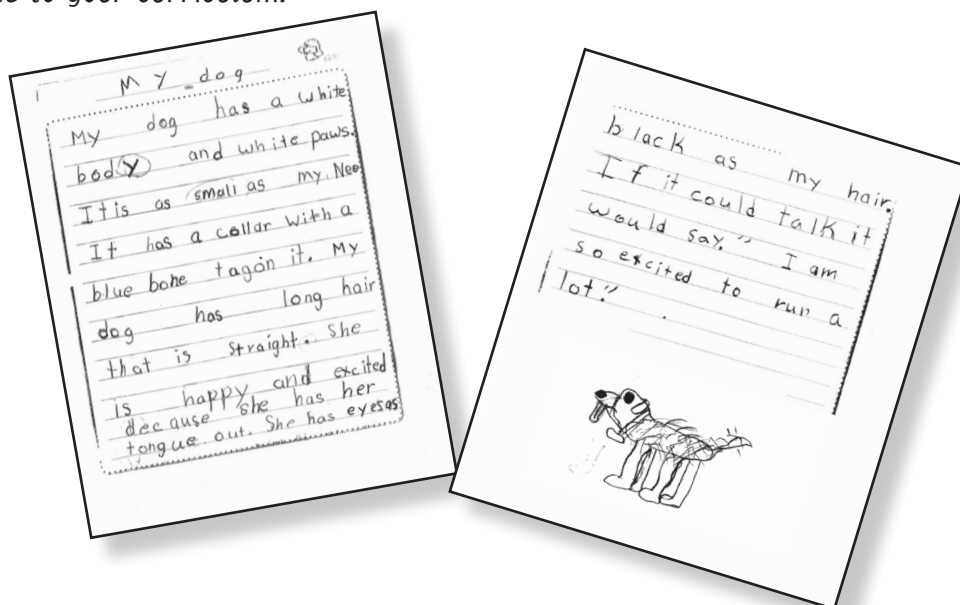 to your curriculum.
My dog
My dog has a white
body and white paws.
It is as small as my. Neo
It has a collar with a
blue bone tag on it. My
dog has long hair
that is straight. She
is happy and excited
decause she has her
tongue out. She has eyes as
black as my hair.
If it could talk it
would say." I am
so excited to run a
lot."